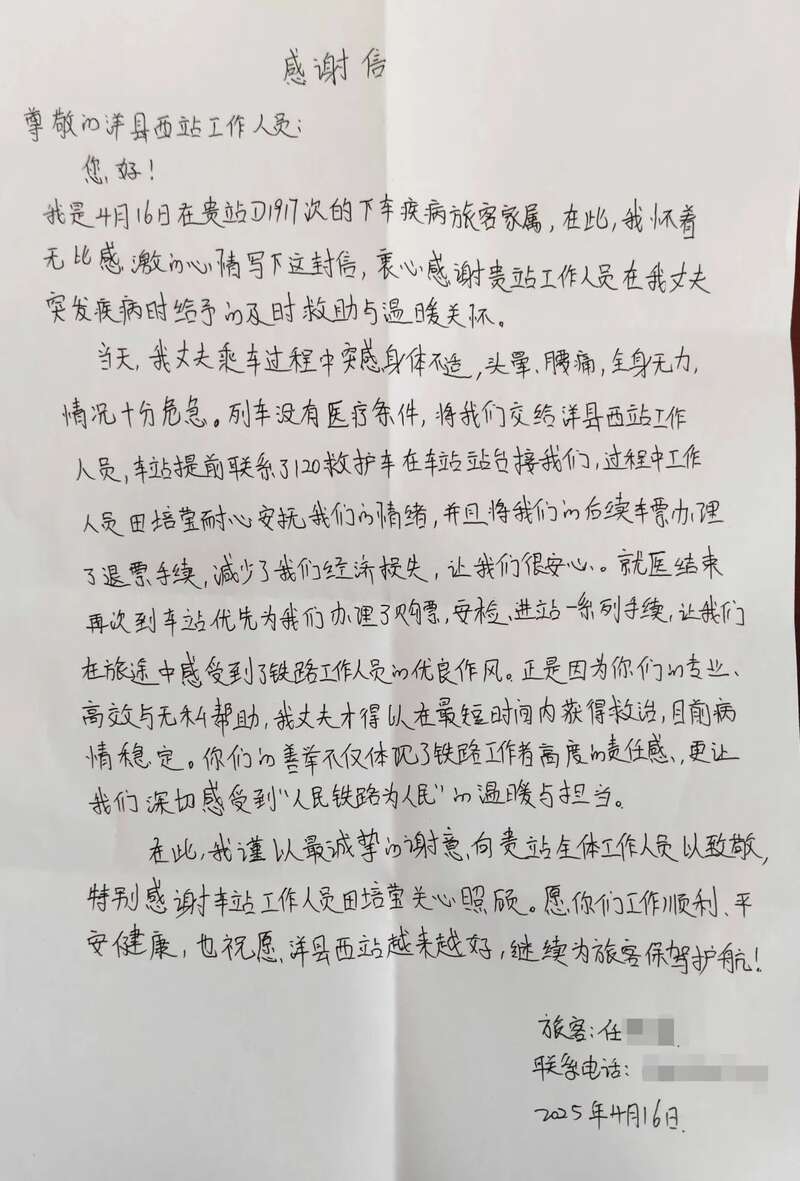 感谢信
尊敬的洋县西站工作人员：
您好！
我是4月16日在贵站D1917次的下车疾病旅客家属，在此，我怀着
无比感激的心情写下这封信，衷心感谢贵站工作人员在我丈夫
突发疾病时给予的及时救助与温暖关怀。
当天，我丈夫乘车过程中突感身体不适，头晕、腰痛，全身无力，
情况十分危急。列车没有医疗条件，将我们交给洋县西站工作
人员，车站提前联系了120救护车在车站站台接我们，过程中工作
人员田培莹耐心安抚我们的情绪，并且将我们的后续车票办理
了退票手续，减少了我们经济损失，让我们很安心。就医结束
再次到车站优先为我们办理了购票，安检、进站一系列手续，让我们
在旅途中感受到了铁路工作人员的优良作风。正是因为你们的专业、
高效与无私帮助，我丈夫才得以在最短时间内获得救治，目前病
情稳定。你们的善举不仅体现了铁路工作者高度的责任感、，更让
我们深切感受到“人民铁路为人民”的温暖与担当。
在此，我谨以最诚挚的谢意，向贵站全体工作人员以致敬，
特别感谢车站工作人员田培莹关心照顾。愿你们工作顺利、平
安健康，也祝愿洋县西站越来越好，继续为旅客保驾护航！
旅客：任
联系电话：
2025年4月16日